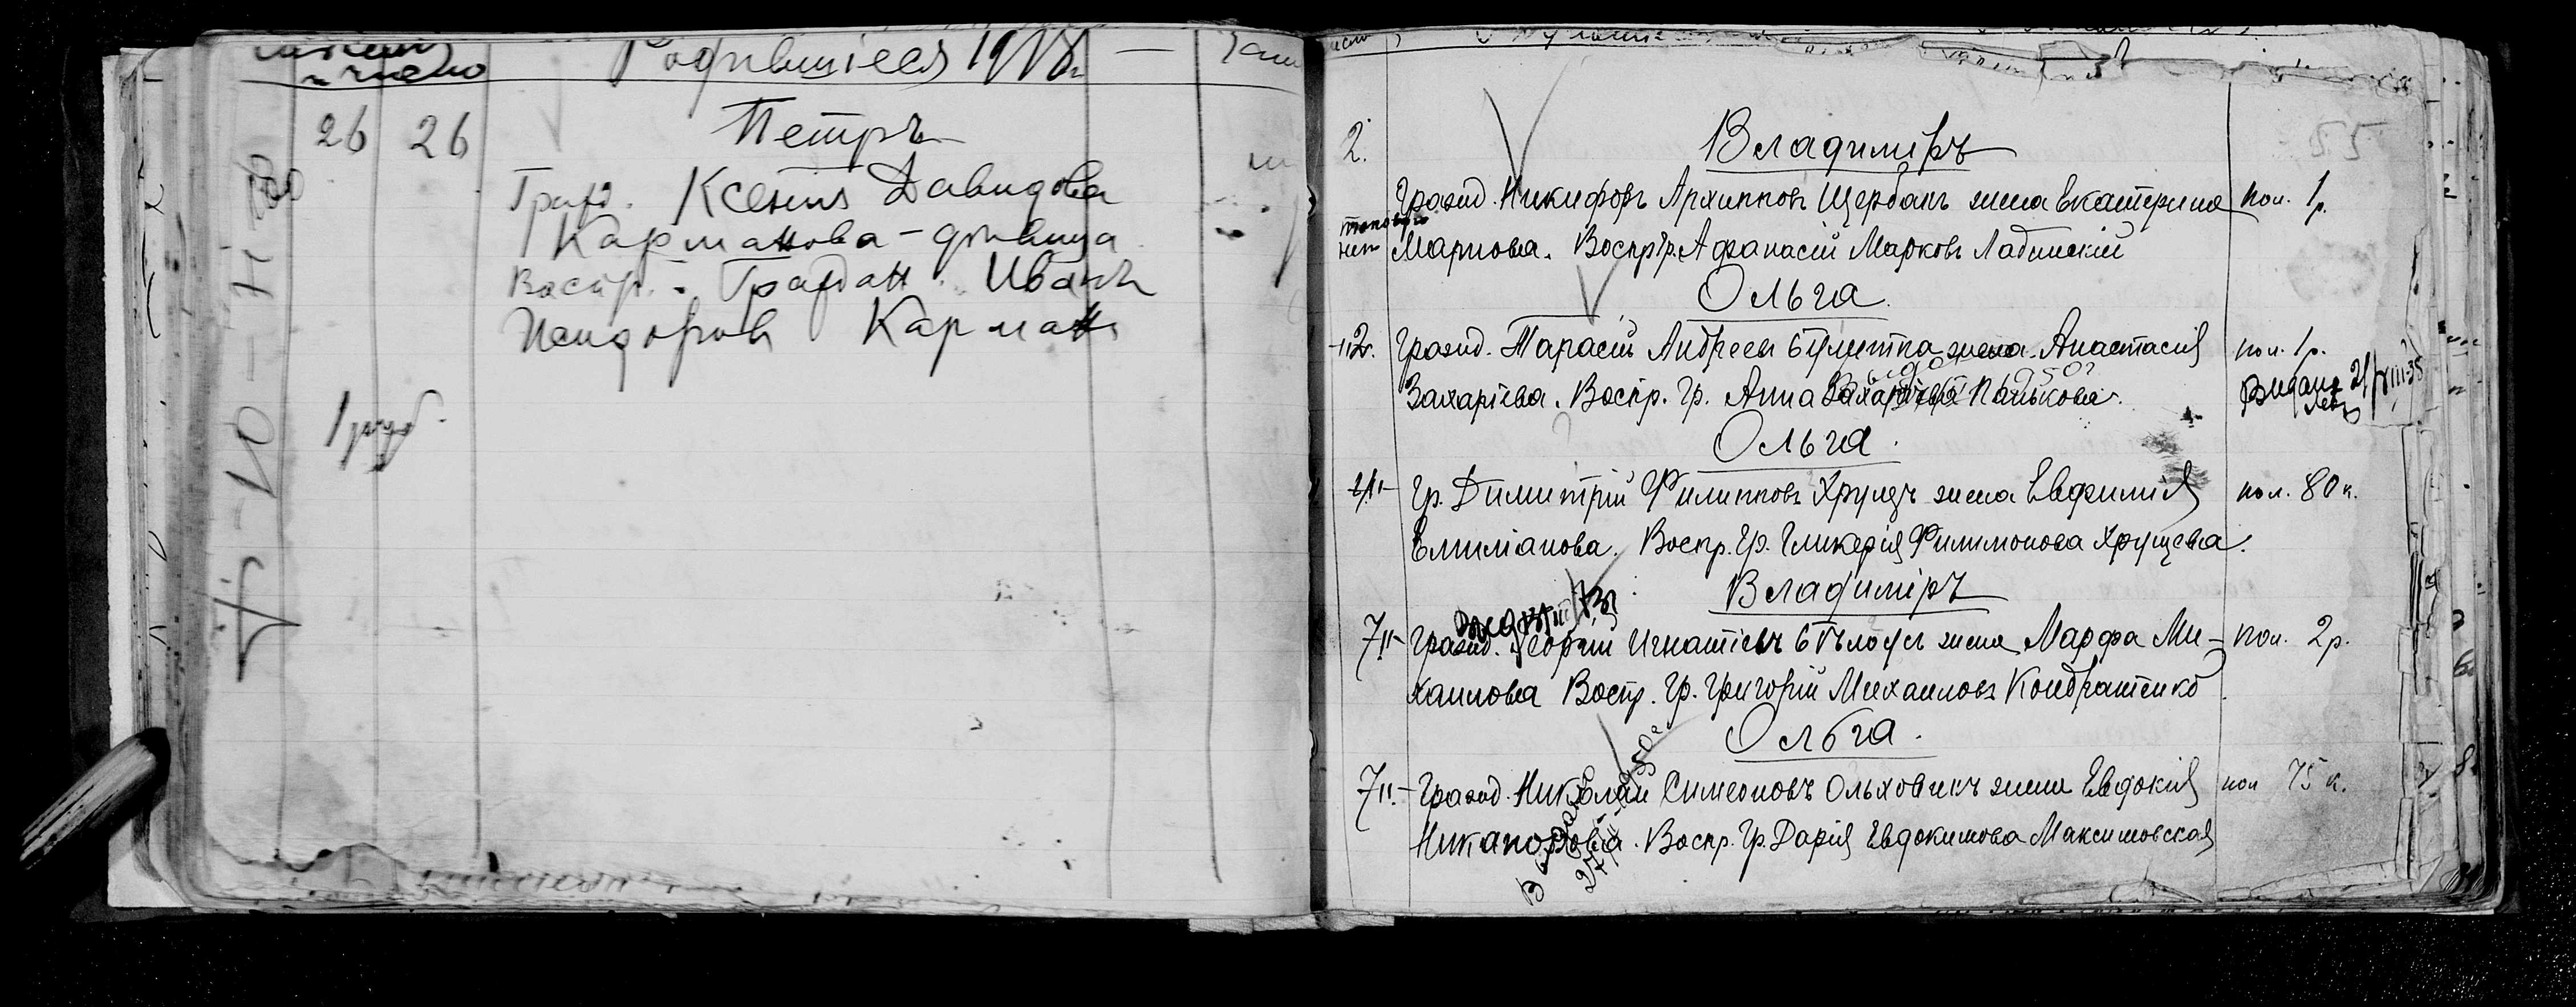 и число
Родившіеся 1918 г. —
26 26 Петръ
Гражд. Ксенія Давидова
Карманова - дѣвица
Воспр. - Граждан. Иванъ
Исидоровъ Карманъ
1 руб.
55
2. Владиміръ
Гражд. Никифоръ Архиповъ Щербакъ жена Екатерина пол. 1 р.
Маркова. Воспр. гр. Афанасій Марковъ Лабинскій
Ольга
12. Гражд. Тарасій Андреевъ Булетка жена Анастасія пол. 1 р.
Захаріева. Воспр. Гр. Анна Захаріева Панькова.
Ольга.
Гр. Димитрій Филипповъ Хрущъ жена Евфимія пол. 80 к.
Емиліанова. Воспр. Гр. Гликерія Филимонова Хрущева.
Владиміръ
7 - Гражд. Георгій Игнатіевъ Бѣлоусъ жена Марфа Ми- пол. 2 р.
хаилова Воспр. Гр. Григорій Михаиловъ Кондратенко
Ольга.
7 - Гражд. Николай Симеоновъ Ольховикъ жена Евдокія пол 75 к.
Никанорова. Воспр. Гр. Дарія Евдокимова Максимовская